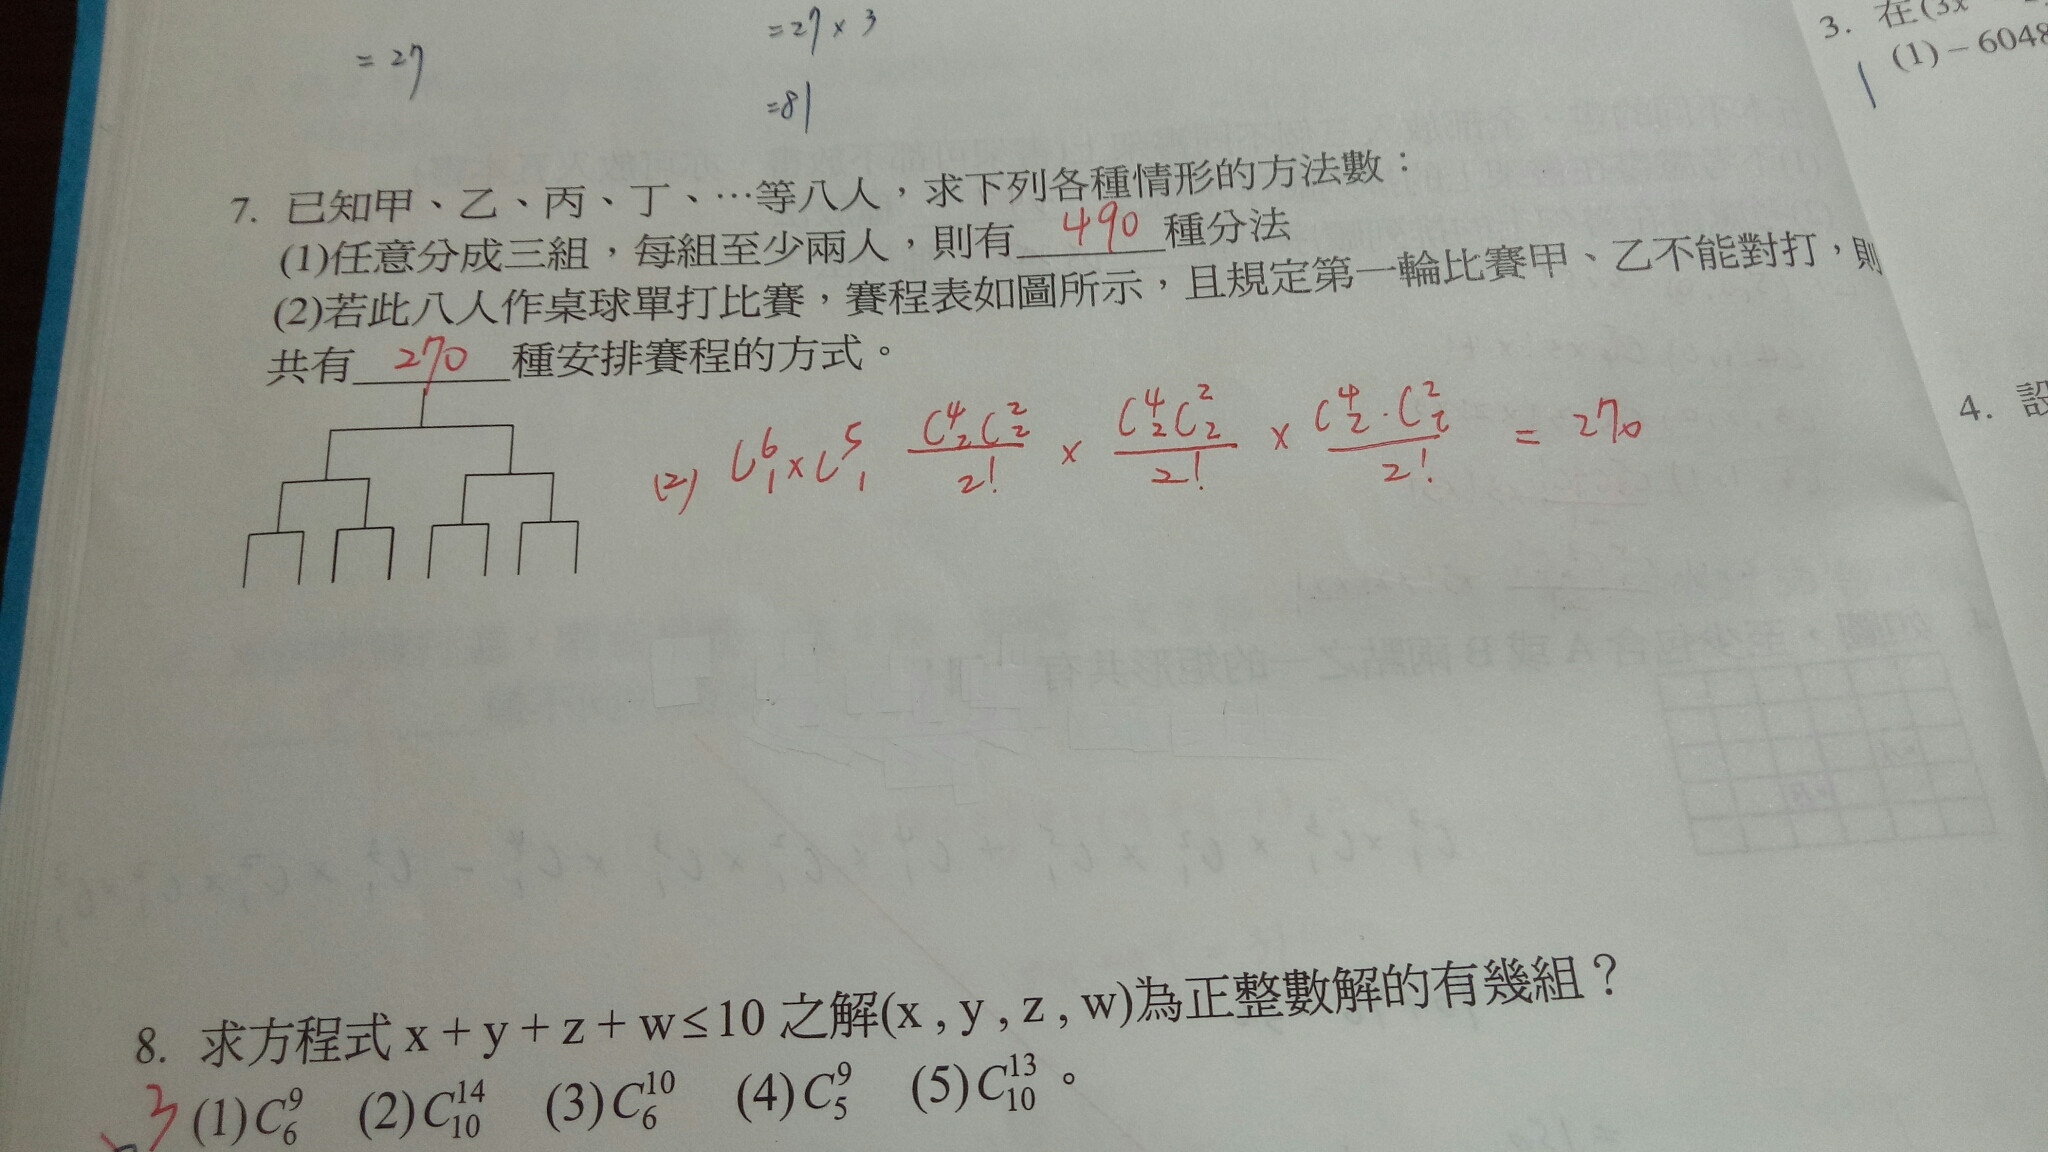 = 27
= 27 × 3
= 81
3. 在(3x
(1) – 6048
7. 已知甲、乙、丙、丁、…等八人，求下列各種情形的方法數：
(1)任意分成三組，每組至少兩人，則有 490 種分法
(2)若此八人作桌球單打比賽，賽程表如圖所示，且規定第一輪比賽甲、乙不能對打，則
共有 270 種安排賽程的方式。
(2) C^6_1 × C^5_1 \frac{C^4_2 C^2_2}{2!} × \frac{C^4_2 C^2_2}{2!} × \frac{C^4_2 · C^2_2}{2!} = 270
4. 設
8. 求方程式 x + y + z + w ≤ 10 之解(x , y , z , w)為正整數解的有幾組？
3 (1) C^9_6 (2) C^{14}_{10} (3) C^{10}_6 (4) C^9_5 (5) C^{13}_{10} 。